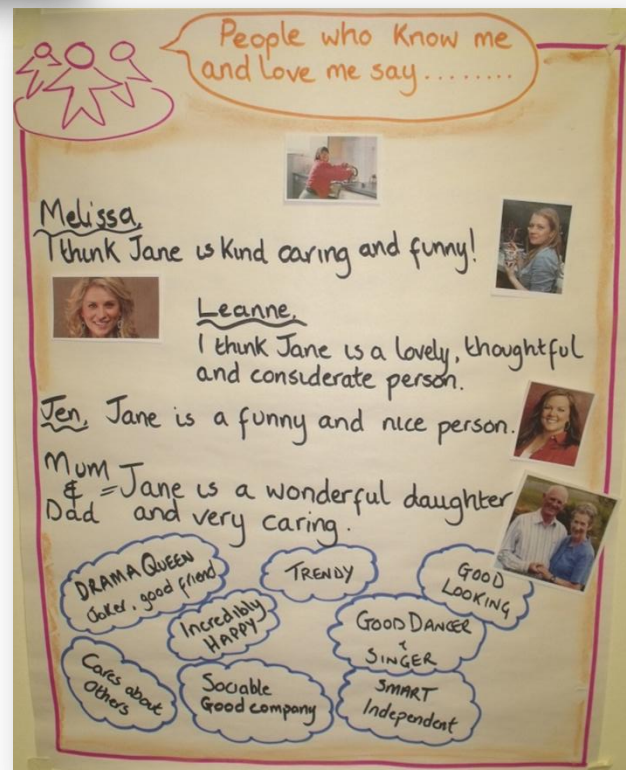 People who know me
and love me say........
Melissa,
I think Jane is kind caring and funny!
Leanne,
I think Jane is a lovely, thoughtful
and considerate person.
Jen, Jane is a funny and nice person.
Mum
& = Jane is a wonderful daughter
Dad and very caring.
DRAMA QUEEN
Joker, good friend
TRENDY
GOOD
LOOKING
Incredibly
HAPPY
GOOD DANCER
+
SINGER
Cares about
Others
Sociable
Good company
SMART
Independent